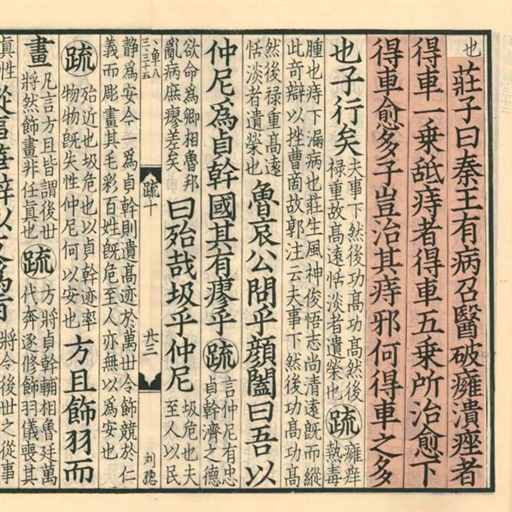 也
莊子曰秦王有病召醫破癰潰痤者
得車一乘舐痔者得車五乘所治愈下
得車愈多子豈治其痔邪何得車之多
也子行矣
夫事下然後功高功高然後
祿重故高遠恬淡者遺榮也
疏
癰痤
熱毒
腫也痔下漏病也莊生風神俊悟志尚清遠既而縱
此奇辯以挫曹商故郭注云夫事下然後功高功高
然後祿重高遠
恬淡者遺榮也
魯哀公問乎顏闔曰吾以
仲尼爲貞幹國其有瘳乎
疏
言仲尼有忠
貞幹濟之德
欲命爲卿相魯邦
亂病庶瘳差矣
曰殆哉圾乎仲尼
圾危也夫
至人以民
疏十
廿三
靜爲安今一爲貞幹則遺高迹於萬世令飾競於仁
義而彫畫其毛彩百姓既危至人亦無以爲安也
疏
殆近也圾危也以貞幹迹率
物物既失性仲尼何以安也
方且飾羽而
畫
凡言方且皆謂後世
將然飾畫非任真也
疏
方將貞幹輔相魯廷萬
代奔逐修飾羽儀喪其
真性
將令後世之從事